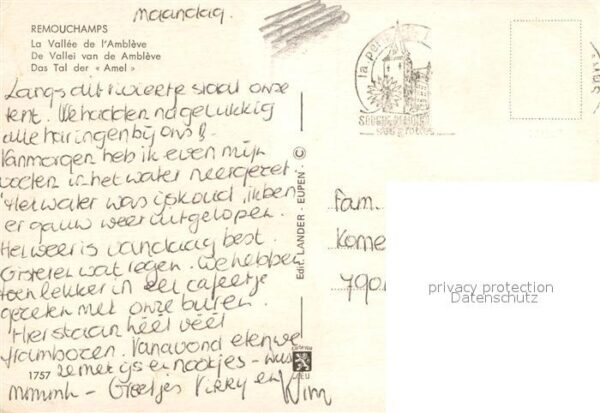 maandag.
REMOUCHAMPS
La Vallée de l'Amblève
De Vallei van de Amblève
Das Tal der « Amel »
Langs dit riviertje staat onze
tent. We hadden nog gelukkig
alle haringen bij ons!
Vanmorgen heb ik even mijn
voeten in het water neergezet.
Het water was ijskoud, ik ben
er gauw weer uitgelopen.
Het weer is vandaag best.
Gisteren wat regen. We hebben
toen lekker in een cafeetje
gezeten met onze buren.
Hier staan héél véél
frambozen. Vanavond eten we
ze met ijs en nootjes -
mmmmh - Groetjes en Wim
1757
Edit. LANDER - EUPEN - ©
Fam.
Kome
790
privacy protection
Datenschutz